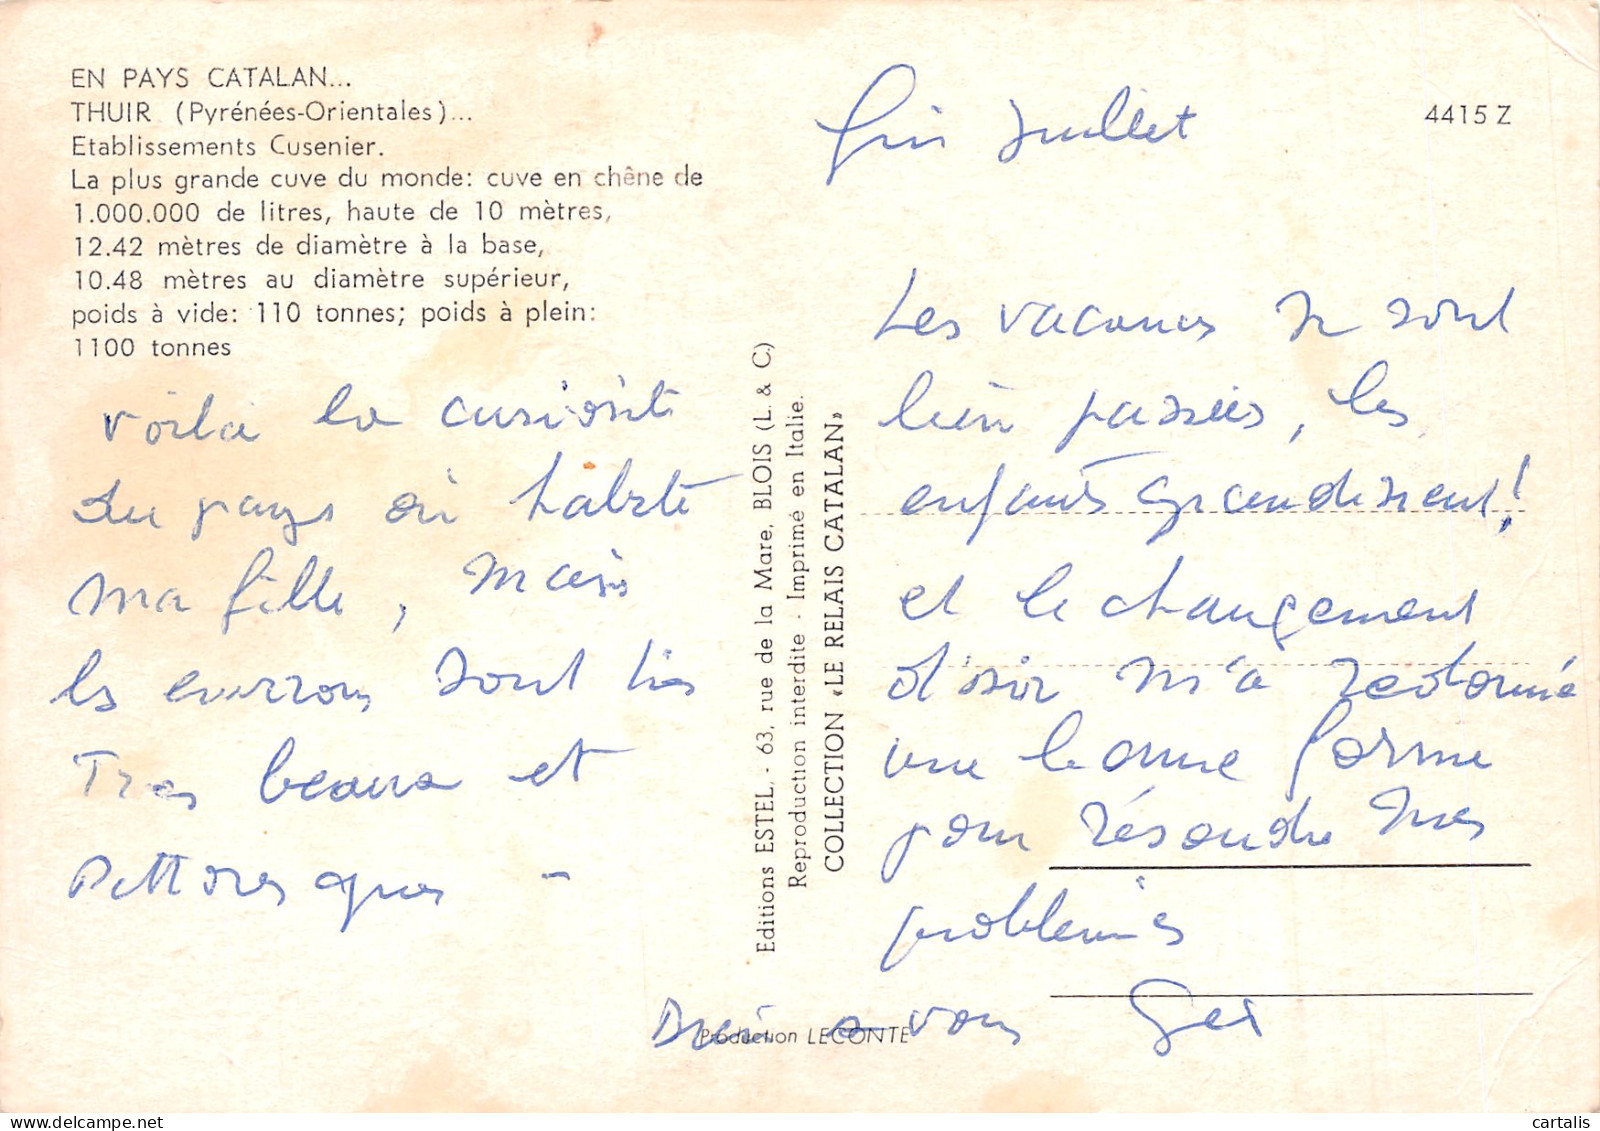 EN PAYS CATALAN...
THUIR (Pyrénées-Orientales)...
Etablissements Cusenier.
La plus grande cuve du monde: cuve en chêne de
1.000.000 de litres, haute de 10 mètres,
12.42 mètres de diamètre à la base,
10.48 mètres au diamètre supérieur,
poids à vide: 110 tonnes; poids à plein:
1100 tonnes
voilà la curiosité
du pays où habite
ma fille, mais
les environs sont
Tres beaux et
pittoresques -
Editions ESTEL. - 63, rue de la Mare, BLOIS (L. & C.)
Reproduction interdite - Imprimé en Italie.
COLLECTION «LE RELAIS CATALAN»
4415 Z
fin Juillet
Les vacances se sont
bien passées, les
enfants grandissent!
et le changement
d'air m'a redonné
une bonne forme
pour résoudre mes
problèmes
à vous
Production LECONTE
cartalis